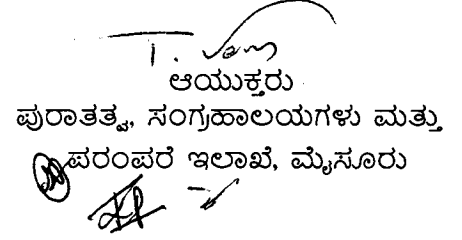 ಆಯುಕ್ತರು
ಪುರಾತತ್ವ, ಸಂಗ್ರಹಾಲಯಗಳು ಮತ್ತು
ಪರಂಪರೆ ಇಲಾಖೆ, ಮೈಸೂರು